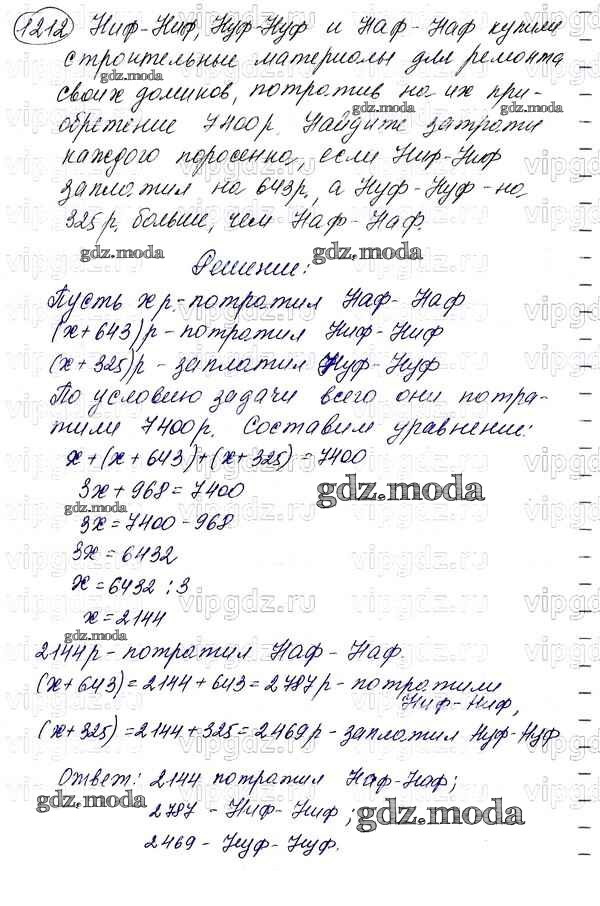 1212 Ниф-Ниф, Нуф-Нуф и Наф-Наф купили
строительные материалы для ремонта
gdz.moda
своих домиков, потратив на их при-
обретение 7400 р. Найдите затраты
каждого поросенка, если Ниф-Ниф
заплатил на 643р., а Нуф-Нуф-на
325 р. больше, чем Наф-Наф.
gdz.moda gdz.moda
Решение:
Пусть x р.-потратил Наф-Наф
(x+643)р - потратил Ниф-Ниф
(x+325)р - заплатил Нуф-Нуф
По условию задачи всего они потра-
тили 7400 р. Составим уравнение:
x+(x+643)+(x+325)=7400
3x+968=7400
gdz.moda
3x=7400-968
3x=6432
x=6432:3
x=2144
gdz.moda
2144р-потратил Наф-Наф.
(x+643)=2144+643=2787р-потратили
Ниф-Ниф,
(x+325)=2144+325=2469р-заплатил Нуф-Нуф
Ответ: 2144 потратил Наф-Наф;
gdz.moda
2787 - Ниф-Ниф;
gdz.moda
2469-Нуф-Нуф.
vipgdz.ru